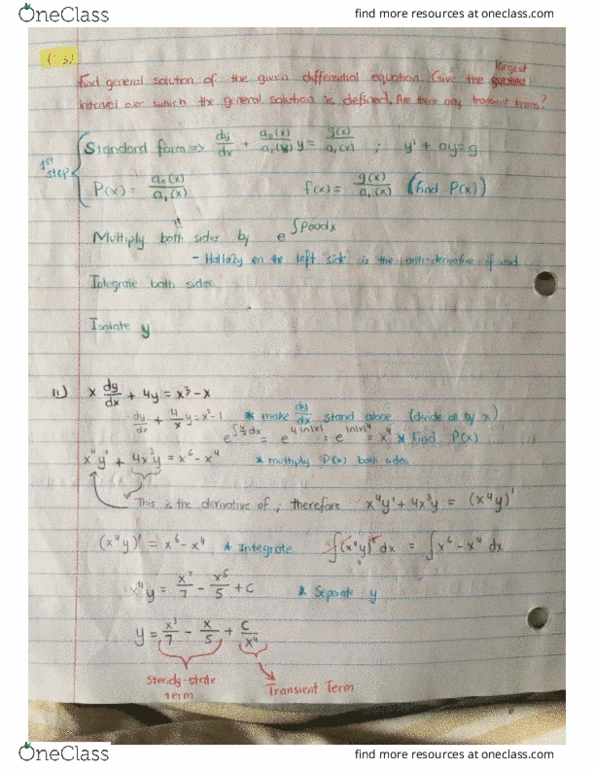 OneClass find more resources at oneclass.com
largest
Find general solution of the given differential equation. Give the
interval over which the general solution is defined. Are there any transient terms?
1st step
Standard form ⇒ dy/dx + a₀(x)/a₁(x) y = g(x)/a₁(x) ; y' + ay = g
P(x) = a₀(x)/a₁(x) f(x) = g(x)/a₁(x) (Find P(x))
Multiply both sides by e^∫P(x)dx
- on the left side is the anti-derivative of
Integrate both sides
Isolate y
11) x dy/dx + 4y = x³ - x
dy/dx + 4/x y = x² - 1 * make dy/dx stand alone (divide all by x)
e^∫4/x dx = e^4 ln|x| = e^ln|x|⁴ = x⁴ * Find P(x)
x⁴y' + 4x³y = x⁶ - x⁴ * multiply P(x) both sides
This is the derivative of ; therefore x⁴y' + 4x³y = (x⁴y)'
(x⁴y)' = x⁶ - x⁴ * Integrate ∫(x⁴y)' dx = ∫x⁶ - x⁴ dx
x⁴y = x⁷/7 - x⁵/5 + C * Separate y
y = x³/7 - x/5 + C/x⁴
Steady-state term
Transient Term
OneClass find more resources at oneclass.com